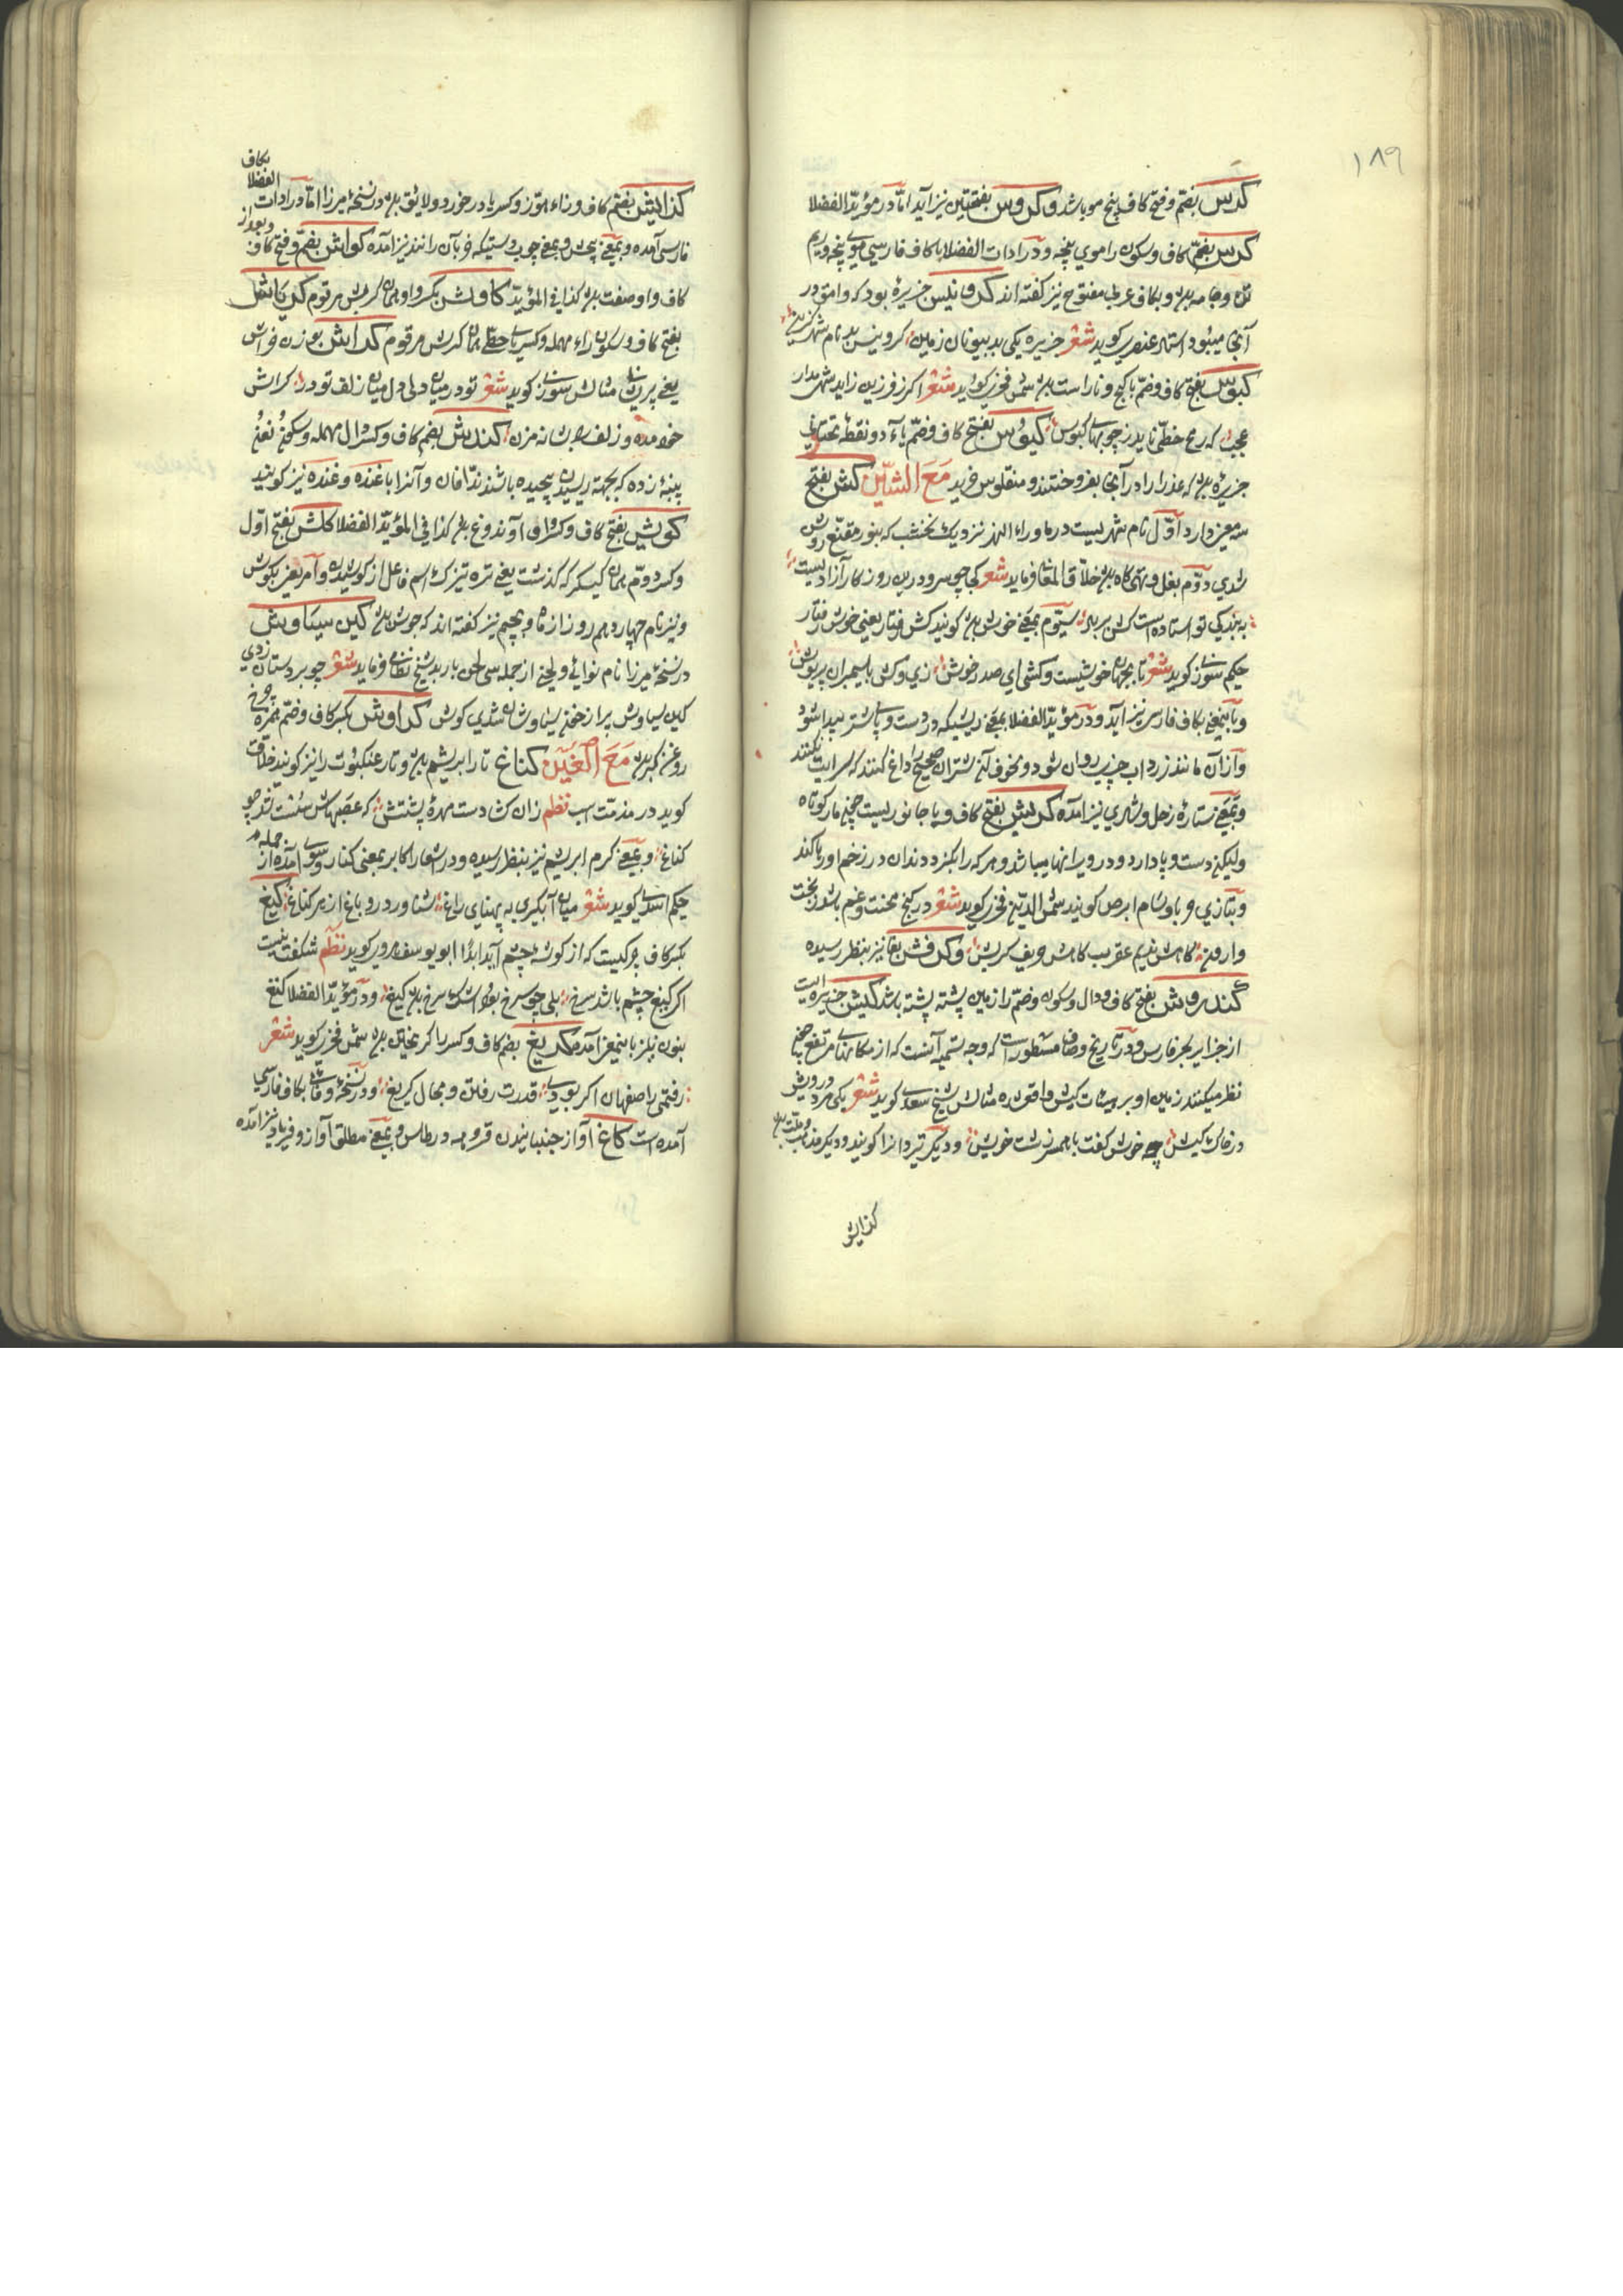 ۱۸۹
کرس بضم و فتح کاف پیچ مو باشد و کروس بفتحتین نیز آید اما در مؤید الفضلا
کرس بضم کاف و سکون را موی پیچه و در ادات الفضلا با کاف فارسی موی پیچه و ریم
تن و جامه بود و بکاف عربی مفتوح نیز گفته اند کروتیس جزیرۀ بود که وامق در
آنجا میبود استاد عنصری کوید شعر جزیره یکی بد بیونان زمین کروتیس بد نام شهر گزین
کبوس بفتح کاف و ضم با کج و ناراست بود شمس فخری کوید شعر اکر ز فرزین زاید شهر مدار
عجب که رمح خطی ناید ز چوبهای کبوس کیوس بفتح کاف و ضم یاء دو نقطه تحتانی
جزیرۀ بود که عذرا را در آنجا بفروختند و منقلوس خرید مع الشین کش بفتح
سه معنی دارد اول نام شهریست در ماوراء النهر نزدیک نخشب که بنور مقنع روشن
شدی دوم بغل و تهی کاه بود خلاق المعانی فرماید شعر کجا چو سرو درین روز کار آزادیست
به بندکی تو استاده است کش بر بر سیوم بمعنی خوش بود کویند کش رفتار یعنی خوش رفتار
حکیم سوزنی کوید شعر تا بجهان خوشیست و کشی ای صدر خوش زی و کش با سیمبران پریوش
و باینمعنی بکاف فارسی نیز آید و در مؤید الفضلا بمعنی ریشیکه در دست و پای شتر پیدا شود
و از آن مانند زرداب چیزی روان شود و بخوف آن شتران صحیح را داغ کنند که سرایت نکند
و بمعنی ستاره زحل و مشتری نیز آمده کریش بفتح کاف و یا جانوریست چون مار کوتاه
ولیکن دست و پا دارد و در ویرانها میباشد و هر که را بکزد دندان در زخم او رها کند
و بتازی وباوشام ابرص کویند شمس الدین فخری کوید شعر در کنج محنت و غم باشد ز بخت
وارون کاهش ندیم عقرب کاهش حریف کریش و کرفش بفا نیز بنظر رسیده
کندروش بفتح کاف و دال و سکون و ضم را زمین پشته پشته باشد کیش جزیره ایست
از جزایر بحر فارس و در تاریخ وصاف مسطور است که وجه تسمیه آنست که از مکانهای مرتفع چون
نظر میکنند زمین او بر هیئات کیش واقع شده مثالش شیخ سعدی کوید شعر یکی مرد درویش
در خاک کیش چه خوش گفت با همسر زشت خویش و دیگر تیردانرا کویند و دیکر مذهب و ملت بود
کذایش
کذایش بضم کاف و زاء هوز و کسر یا در خورد و لایق بود در نسخۀ میرزا اما در ادات الفضلا بکاف
فارسی آمده و بمعنی بخش و بمعنی چوب دستیکه خر بآن رانند نیز آمده کواش بضم و فتح کاف و بعد از
کاف واو صفت بود کذا فی المؤید کاوش بکسر واو همان کربش مرقوم کرباش
بفتح کاف و سکون راء مهمله و کسر یاء حطی همان کربش مرقوم کراش بوزن فراش
یعنی پریشان مثالش سوزنی کوید شعر تو در میان دلی دل میان زلف تو در کراش
خود مده و زلف را بشانه مزن کندش بضم کاف و کسر دال مهمله و سکون نون
پنبۀ زده که بجهة ریسیدن پیچیده باشند ندافان و آنرا با غنده و غنده نیز کویند
کویش بفتح کاف و کسر واو آوند دوغ بود کذا فی المؤید الفضلا کلش بفتح اول
و کسر دوم همان کیکر که کذشت یعنی تره تیزک اسم فاعل از کوشیدن و امر یعنی بکوش
و نیز نام چهاردهم روز از ماه و بجیم نیز کفته اند که جوش بود کین سیاوش
در نسخۀ میرزا نام نوائی و لحنی از جمله سی لحن باربد شیخ نظامی فرماید شعر چو بر دستان زدی
کین سیاوش پر از خون سیاوشان شدی کوش کراوش بکسر کاف و ضم همزه چرخ
روغن کیری بود مع الغین کناغ تار ابریشم بود و تار عنکبوت را نیز کویند خلاق
کوید در مذمت اسب نظم زان کشادست مهرۀ پشتش که عصبهاش سست شد چو
کناغ و بمعنی کرم ابریشم نیز بنظر رسیده و در اشعار اکابر بمعنی کنار و سوی آمده از جمله
حکیم اسدی کوید شعر میان آبکیری به پهنای راغ شناور درو باغ از هر کناغ کیغ
بکسر کاف چرکیست که از کوشه چشم آید ابدا ابو یوسف هروی کوید نظم شکفت نیست
اکر کیغ چشم باشد سرخ بلی چو سرخ بود اشک سرخ باید کیغ و در مؤید الفضلا کنغ
بنون نیز باینمعنی آمده کریغ بضم کاف و کسر را کریختن بود شمس فخری کوید شعر
رفتمی راصفهان اکر بودی قدرت رفتن و مجال کریغ و در نسخۀ وفائی بکاف فارسی
آمده است کاغ آواز جنبانیدن قروسه و ریطاس و بمعنی مطلق آواز و فریاد نیز آمده